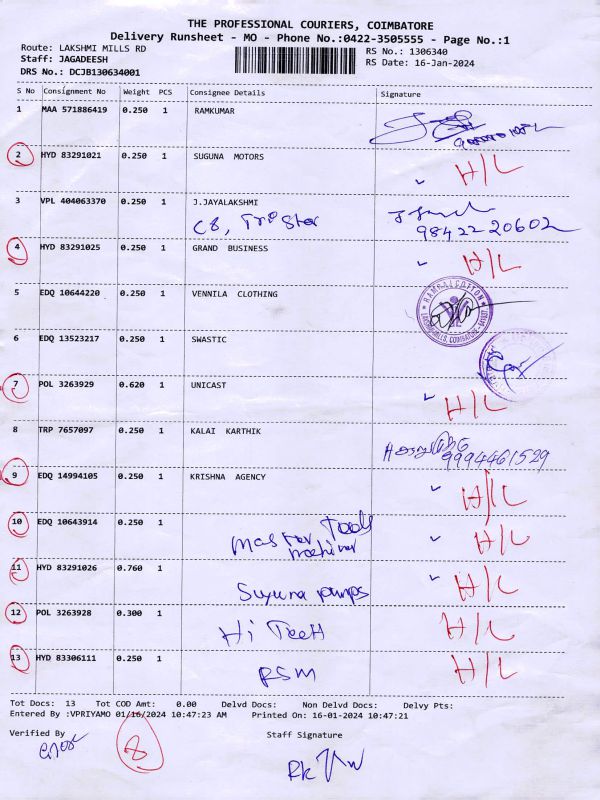 THE PROFESSIONAL COURIERS, COIMBATORE
Delivery Runsheet - MO - Phone No.:0422-3505555 - Page No.:1
Route: LAKSHMI MILLS RD RS No.: 1306340
Staff: JAGADEESH RS Date: 16-Jan-2024
DRS No.: DCJB130634001
S No Consignment No Weight PCS Consignee Details Signature
1 MAA 571886419 0.250 1 RAMKUMAR
2 HYD 83291021 0.250 1 SUGUNA MOTORS H/L
3 VPL 404063370 0.250 1 J.JAYALAKSHMI
C8, Tri Star 98422 20602
4 HYD 83291025 0.250 1 GRAND BUSINESS H/L
5 EDQ 10644220 0.250 1 VENNILA CLOTHING
6 EDQ 13523217 0.250 1 SWASTIC
7 POL 3263929 0.620 1 UNICAST H/L
8 TRP 7657097 0.250 1 KALAI KARTHIK
9994461529
9 EDQ 14994105 0.250 1 KRISHNA AGENCY H/L
10 EDQ 10643914 0.250 1 Master Tools H/L
11 HYD 83291026 0.760 1 Suguna pumps H/L
12 POL 3263928 0.300 1 Hi Tech H/L
13 HYD 83306111 0.250 1 RSM H/L
Tot Docs: 13 Tot COD Amt: 0.00 Delvd Docs: Non Delvd Docs: Delvy Pts:
Entered By :VPRIYAMO 01/16/2024 10:47:23 AM Printed On: 16-01-2024 10:47:21
Verified By Staff Signature
8